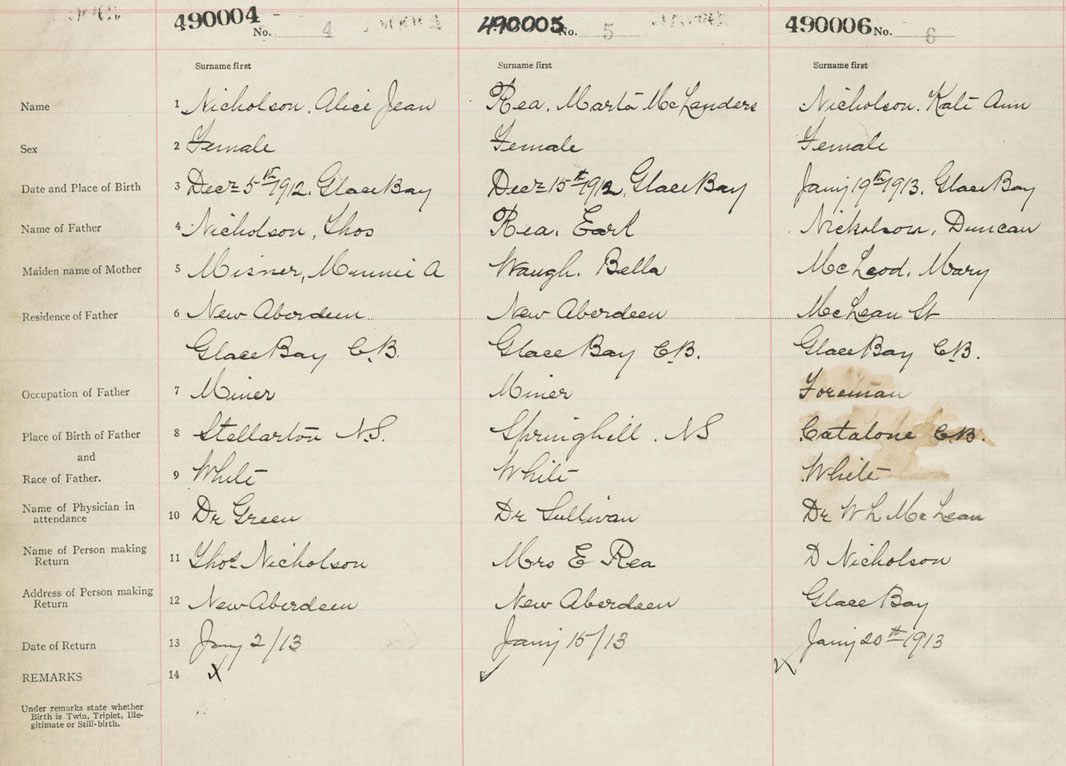 490004 No. 4 490005 No. 5 490006 No. 6
Surname first Surname first Surname first
Name 1 Nicholson, Alice Jean Rea, Marta McLanders Nicholson, Kate Ann
Sex 2 Female Female Female
Date and Place of Birth 3 Decr 5th 1912, Glace Bay Decr 15th 1912, Glace Bay Jany 19th 1913, Glace Bay
Name of Father 4 Nicholson, Thos Rea, Earl Nickolson, Duncan
Maiden name of Mother 5 Misner, Minnie A Waugh, Bella McLeod, Mary
Residence of Father 6 New Aberdeen New Aberdeen McLean St
Glace Bay C.B. Glace Bay C.B. Glace Bay C.B.
Occupation of Father 7 Miner Miner Foreman
Place of Birth of Father 8 Stellarton N.S. Springhill. NS Catalone C.B.
and
Race of Father. 9 White White White
Name of Physician in
attendance 10 Dr Green Dr Sullivan Dr W L McLean
Name of Person making
Return 11 Thos Nicholson Mrs E Rea D Nicholson
Address of Person making
Return 12 New Aberdeen New Aberdeen Glace Bay
Date of Return 13 Jany 2/13 Jany 15/13 Jany 20th 1913
REMARKS 14 X
Under remarks state whether
Birth is Twin, Triplet, Ille-
gitimate or Still-birth.